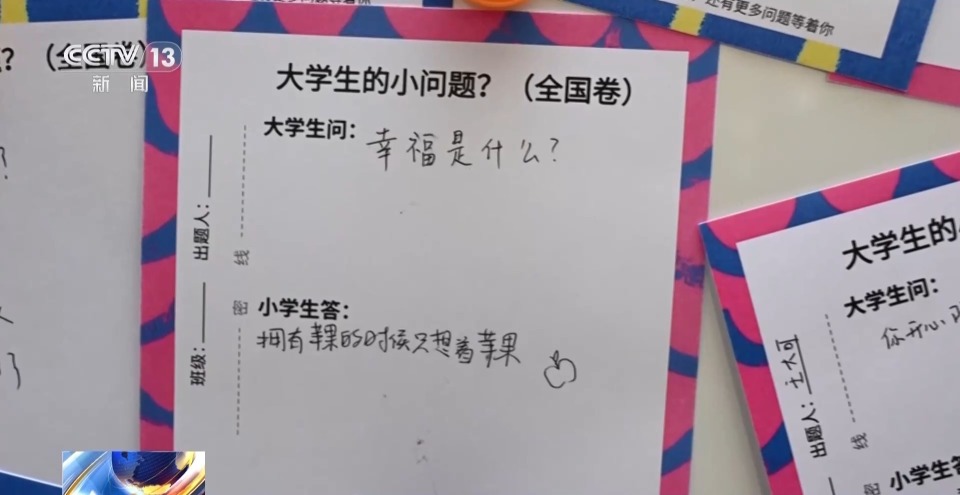 CCTV 13
新闻
(全国卷)
还有更多问题等着你
大学生的小问题？（全国卷）
大学生问：
幸福是什么？
出题人：
线
密
小学生答：
拥有苹果的时候只想着苹果
班级：
大学生的
大学生问：
你开心
出题人：王大可
线
密
小学生答